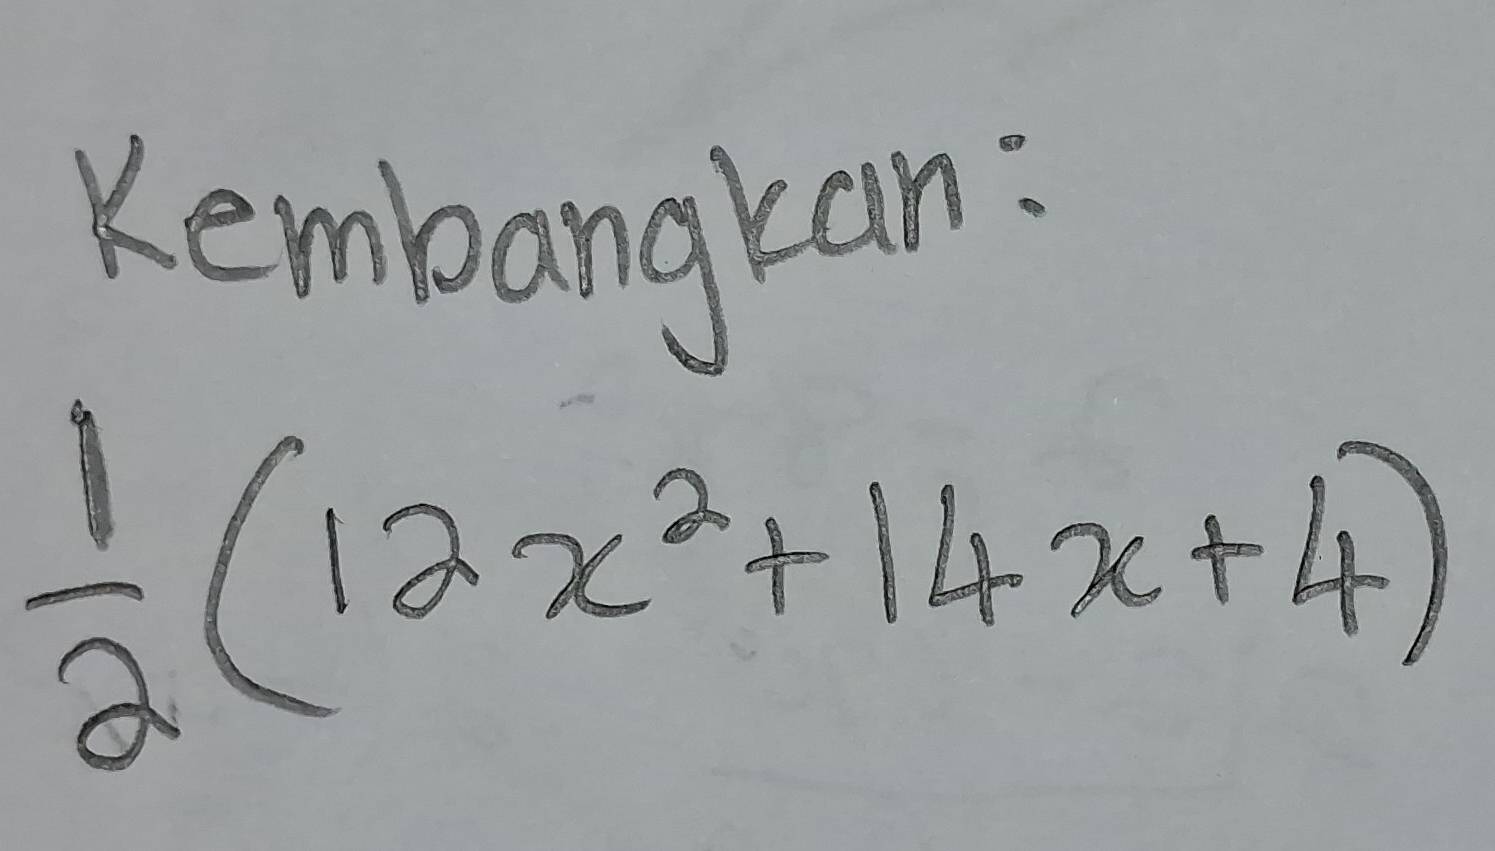 Kembangkan:
1/2 (12x² + 14x + 4)